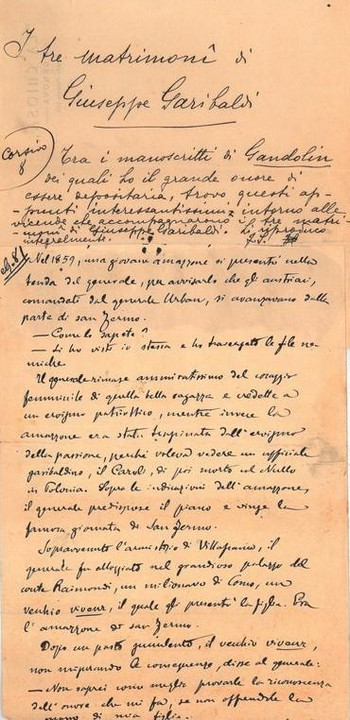 I tre matrimonî di
Giuseppe Garibaldi
Corsivo
8
Tra i manoscritti di Gandolin
dei quali ho il grande onore di
essere depositaria, trovo questi ap-
punti interessantissimi intorno alle
vicende che accompagnarono i tre matri-
monî di Giuseppe Garibaldi. Li riproduco
integralmente.
Nel 1859, una giovane amazzone si presentò nella
tenda del generale, per avvisarlo che gli austriaci,
comandati dal generale Urban, si avanzavano dalla
parte di San Fermo.
— Come lo sapete?
— Li ho visti io stessa e ho traversato le file ne-
miche.
Il generale rimase ammiratissimo del coraggio
femminile di quella bella ragazza e credette a
un eroismo patriottico, mentre invece la
amazzone era stata trascinata dall'eroismo
della passione, perché voleva vedere un ufficiale
garibaldino, il Caroli, di poi morto col Nullo
in Polonia. Sopra le indicazioni dell'amazzone,
il generale predispose il piano e vinse la
famosa giornata di San Fermo.
Sopravvenuto l'armistizio di Villafranca, il
generale fu alloggiato nel grandioso palazzo del
conte Raimondi, un milionario di Como, un
vecchio viveur, il quale gli presentò la figlia. Era
l'amazzone di San Fermo.
Dopo un pasto, il vecchio viveur,
non misurando le conseguenze, disse al generale:
— Non saprei come meglio provarle la riconoscenza
dell'onore che mi fa, se non offrendole la
mano di mia figlia.